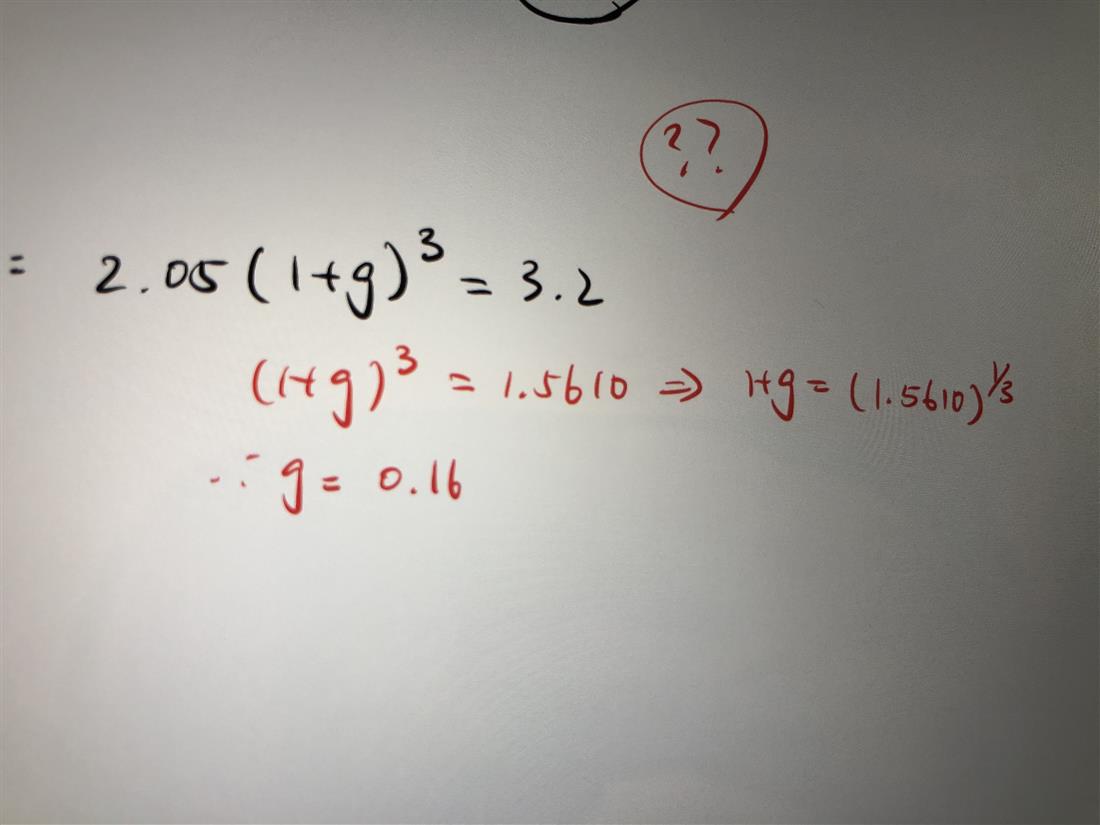 ??
= 2.05(1+g)³ = 3.2
(1+g)³ = 1.5610 ⇒ 1+g = (1.5610)^1/3
∵ g = 0.16